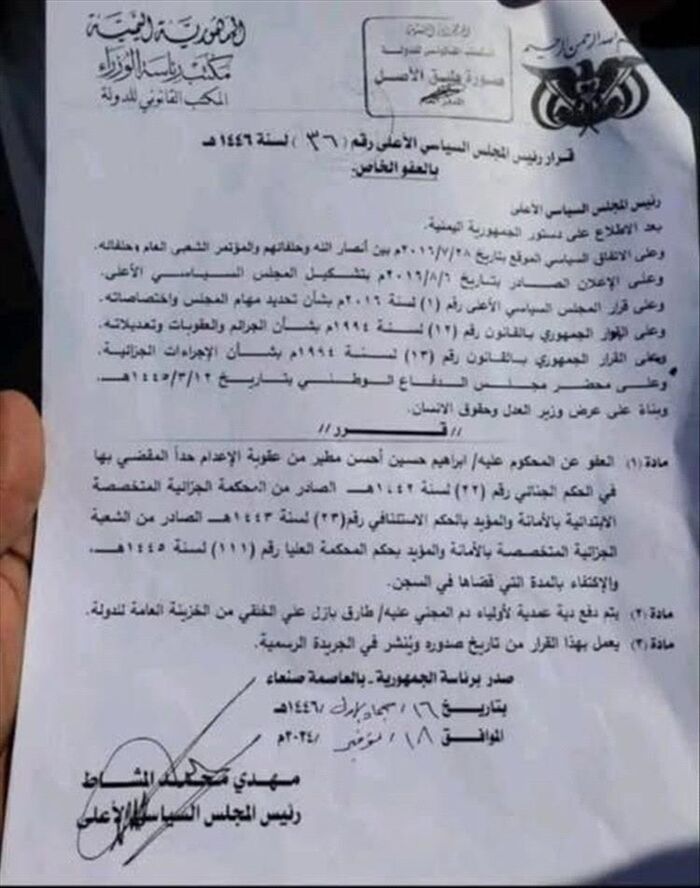 بسم الله الرحمن الرحيم
الجمهورية اليمنية
مكتب رئاسة الوزراء
المكتب القانوني للدولة
الجمهورية اليمنية
المكتب القانوني للدولة
صورة طبق الأصل
قرار رئيس المجلس السياسي الأعلى رقم (٣٦) لسنة ١٤٤٦هـ
بالعفو الخاص.
رئيس المجلس السياسي الأعلى
بعد الاطلاع على دستور الجمهورية اليمنية.
وعلى الاتفاق السياسي الموقع بتاريخ ٢٠١٦/٧/٢٨م بين أنصار الله وحلفائهم والمؤتمر الشعبي العام وحلفائه.
وعلى الإعلان الصادر بتاريخ ٢٠١٦/٨/٦م بتشكيل المجلس السياسي الأعلى.
وعلى قرار المجلس السياسي الأعلى رقم (١) لسنة ٢٠١٦م بشأن تحديد مهام المجلس واختصاصاته.
وعلى القرار الجمهوري بالقانون رقم (١٢) لسنة ١٩٩٤م بشأن الجرائم والعقوبات وتعديلاته.
وعلى القرار الجمهوري بالقانون رقم (١٣) لسنة ١٩٩٤م بشأن الإجراءات الجزائية.
وعلى محضر مجلس الدفاع الوطني بتاريخ ١٤٤٥/٣/١٢هـ.
وبناءً على عرض وزير العدل وحقوق الانسان.
// قـــــرر //
مادة (١) العفو عن المحكوم عليه/ ابراهيم حسين أحسن مطير من عقوبة الإعدام حداً المقضي بها
في الحكم الجنائي رقم (٢٢) لسنة ١٤٤٢هـ الصادر من المحكمة الجزائية المتخصصة
الابتدائية بالأمانة والمؤيد بالحكم الاستئنافي رقم(٢٣) لسنة ١٤٤٣هـ الصادر من الشعبة
الجزائية المتخصصة بالأمانة والمؤيد بحكم المحكمة العليا رقم (١١١) لسنة ١٤٤٥هـ.
والإكتفاء بالمدة التي قضاها في السجن.
مادة (٢) يتم دفع دية عمدية لأولياء دم المجني عليه/ طارق بازل علي الخلقي من الخزينة العامة للدولة.
مادة (٣) يعمل بهذا القرار من تاريخ صدوره ويُنشر في الجريدة الرسمية.
صدر برئاسة الجمهورية - بالعاصمة صنعاء
بتاريخ ١٦/جماد الأول/١٤٤٦هـ
الموافق ١٨/نوفمبر/٢٠٢٤م
مهدي محمد المشاط
رئيس المجلس السياسي الأعلى